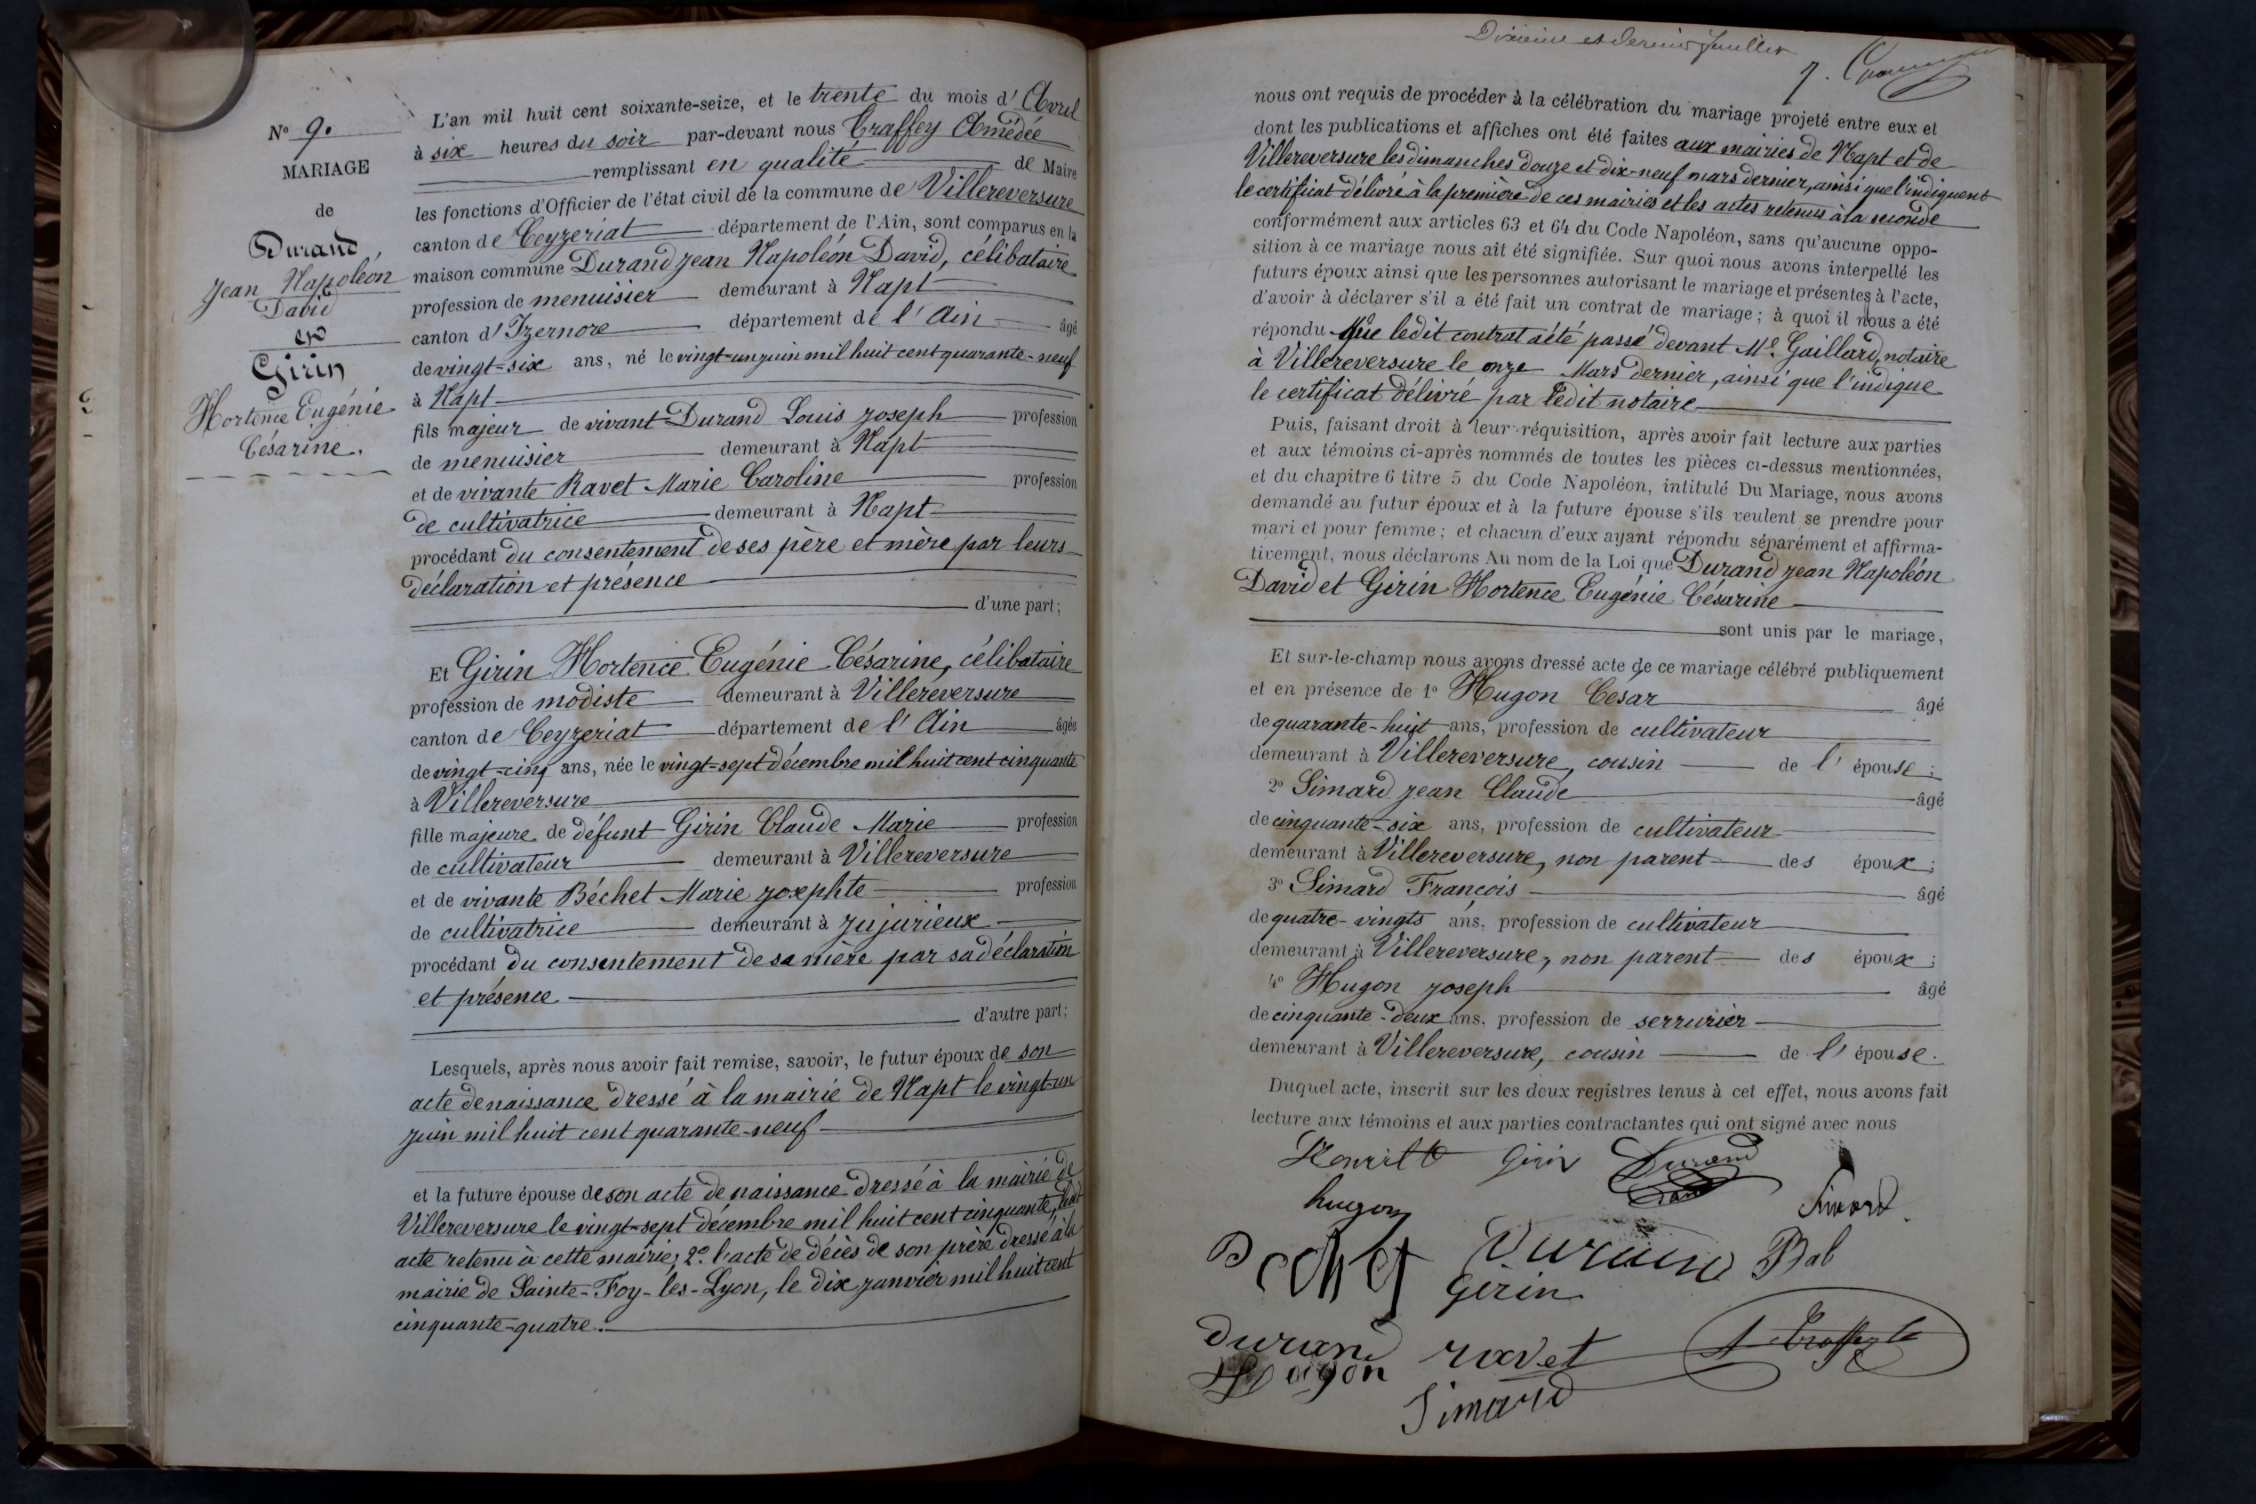 N° 9.
MARIAGE
de
Durand
Jean Napoléon
David
et
Girin
Hortence Eugénie
Césarine.
L'an mil huit cent soixante-seize, et le trente du mois d'Avril
à six heures du soir par-devant nous Traffey Amédée
remplissant en qualité de Maire
les fonctions d'Officier de l'état civil de la commune de Villereversure
canton de Ceyzeriat département de l'Ain, sont comparus en la
maison commune Durand Jean Napoléon David, célibataire
profession de menuisier demeurant à Napt
canton d'Izernore département de l'Ain âgé
de vingt-six ans, né le vingt-un juin mil huit cent quarante-neuf
à Napt
fils majeur de vivant Durand Louis Joseph profession
de menuisier demeurant à Napt
et de vivante Ravet Marie Caroline profession
de cultivatrice demeurant à Napt
procédant du consentement de ses père et mère par leurs
déclaration et présence
d'une part;
Et Girin Hortence Eugénie Césarine, célibataire
profession de modiste demeurant à Villereversure
canton de Ceyzeriat département de l'Ain âgée
de vingt-cinq ans, née le vingt-sept décembre mil huit cent cinquante
à Villereversure
fille majeure de défunt Girin Claude Marie profession
de cultivateur demeurant à Villereversure
et de vivante Béchet Marie Josephte profession
de cultivatrice demeurant à Jujurieux
procédant du consentement de sa mère par sa déclaration
et présence
d'autre part;
Lesquels, après nous avoir fait remise, savoir, le futur époux de son
acte de naissance dressé à la mairie de Napt le vingt-un
juin mil huit cent quarante-neuf
et la future épouse de son acte de naissance dressé à la mairie de
Villereversure le vingt-sept décembre mil huit cent cinquante,
acte retenu à cette mairie; 2° l'acte de décès de son père dressé à la
mairie de Sainte-Foy-les-Lyon, le dix janvier mil huit cent
cinquante-quatre.
Dixième et dernier feuillet
nous ont requis de procéder à la célébration du mariage projeté entre eux et
dont les publications et affiches ont été faites aux mairies de Napt et de
Villereversure les dimanches douze et dix-neuf mars dernier, ainsi que l'indiquent
le certificat délivré à la première de ces mairies et les actes retenus à la seconde
conformément aux articles 63 et 64 du Code Napoléon, sans qu'aucune oppo-
sition à ce mariage nous ait été signifiée. Sur quoi nous avons interpellé les
futurs époux ainsi que les personnes autorisant le mariage et présentes à l'acte,
d'avoir à déclarer s'il a été fait un contrat de mariage; à quoi il nous a été
répondu que ledit contrat a été passé devant Me. Gaillard, notaire
à Villereversure le onze Mars dernier, ainsi que l'indique
le certificat délivré par ledit notaire
Puis, faisant droit à leur réquisition, après avoir fait lecture aux parties
et aux témoins ci-après nommés de toutes les pièces ci-dessus mentionnées,
et du chapitre 6 titre 5 du Code Napoléon, intitulé Du Mariage, nous avons
demandé au futur époux et à la future épouse s'ils veulent se prendre pour
mari et pour femme; et chacun d'eux ayant répondu séparément et affirma-
tivement, nous déclarons Au nom de la Loi que Durand Jean Napoléon
David et Girin Hortence Eugénie Césarine
sont unis par le mariage,
Et sur-le-champ nous avons dressé acte de ce mariage célébré publiquement
et en présence de 1° Hugon César âgé
de quarante-huit ans, profession de cultivateur
demeurant à Villereversure, cousin de l'épouse;
2° Simard Jean Claude âgé
de cinquante-six ans, profession de cultivateur
demeurant à Villereversure, non parent des époux;
3° Simard François âgé
de quatre-vingts ans, profession de cultivateur
demeurant à Villereversure, non parent des époux;
4° Hugon Joseph âgé
de cinquante-deux ans, profession de serrurier
demeurant à Villereversure, cousin de l'épouse.
Duquel acte, inscrit sur les deux registres tenus à cet effet, nous avons fait
lecture aux témoins et aux parties contractantes qui ont signé avec nous
Girin Durand
hugon Simard
Bechet Durand Bal
Girin
Durand ravet A. Traffey
Hugon
Simard